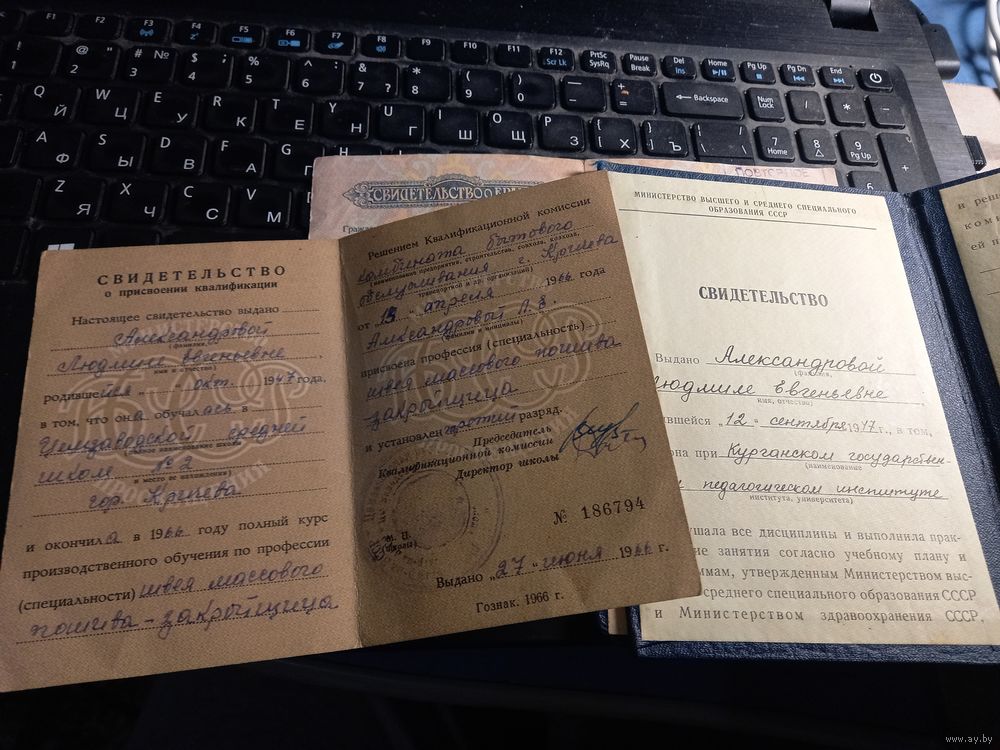 СВИДЕТЕЛЬСТВО
о присвоении квалификации
Настоящее свидетельство выдано
Александровой
(фамилия,
Людмиле Евгеньевне,
имя и отчество)
родившейся „ " окт. 1947 года,
в том, что она обучалась в
Цемзаводской средней
школе № 2
и место ее нахождения)
гор. Кричева
и окончила в 1966 году полный курс
производственного обучения по профессии
(специальности) швея массового
пошива - закройщица
Решением Квалификационной комиссии
комбината бытового
(наименование предприятия, строительства, совхоза, колхоза,
обслуживания г. Кричева
транспортной и др. организаций)
от „13" апреля 1966 года
Александровой Л. Е.
(фамилия и инициалы)
присвоена профессия (специальность)
швея массового пошива
закройщица
и установлен третий разряд.
Председатель
Квалификационной комиссии
Директор школы
М. П.
(школы)
№ 186794
Выдано „27" июня 1966 г.
Гознак. 1966 г.
СВИДЕТЕЛЬСТВО О
ПОВТОРНОЕ
МИНИСТЕРСТВО ВЫСШЕГО И СРЕДНЕГО СПЕЦИАЛЬНОГО
ОБРАЗОВАНИЯ СССР
СВИДЕТЕЛЬСТВО
Выдано Александровой
(фамилия,
Людмиле Евгеньевне
имя, отчество)
вшейся „12" сентября 1947 г., в том,
она при Курганском государствен-
(наименование
м педагогическом институте
института, университета)
ушала все дисциплины и выполнила прак-
ие занятия согласно учебному плану и
ммам, утвержденным Министерством выс-
среднего специального образования СССР
и Министерством здравоохранения СССР,
и реш
ком
ей п
www.ay.by
F1 F2 F3 F4 F5 F6 F7 F8 F9 F10 F11 F12 PrtSc Pause Del Home Pg Up Pg Dn End
Scr Lk SysRq Break Ins
Backspace Num Lock
7 Home 8 9 Pg Up